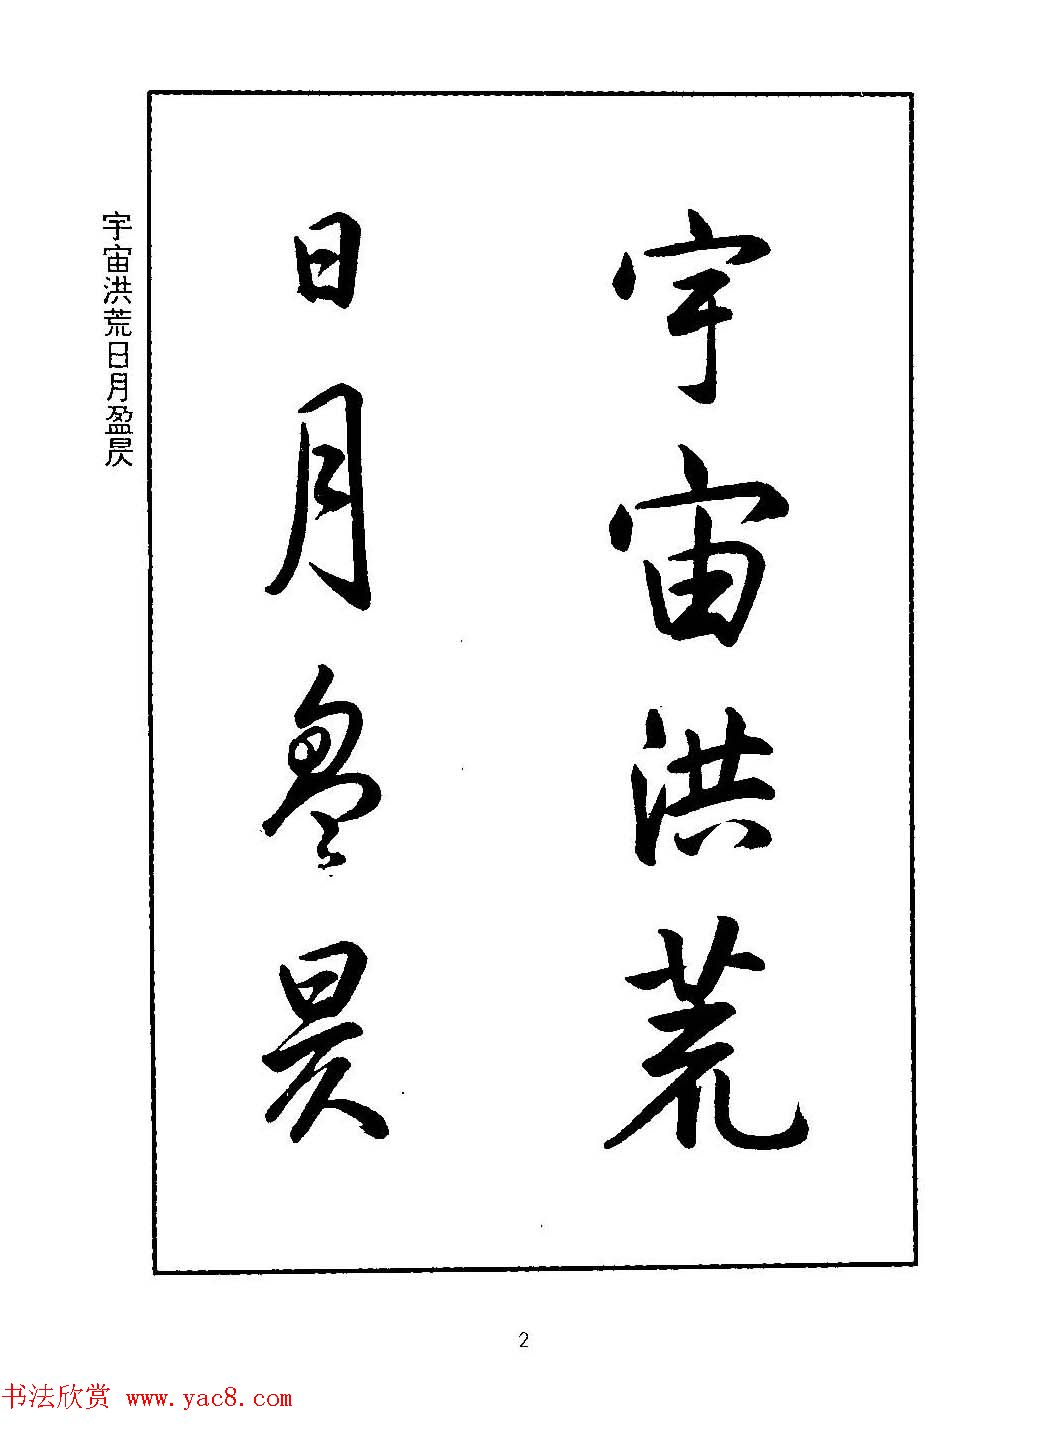 宇宙洪荒
日月盈昃
宇宙洪荒日月盈昃
2
书法欣赏 www.yac8.com